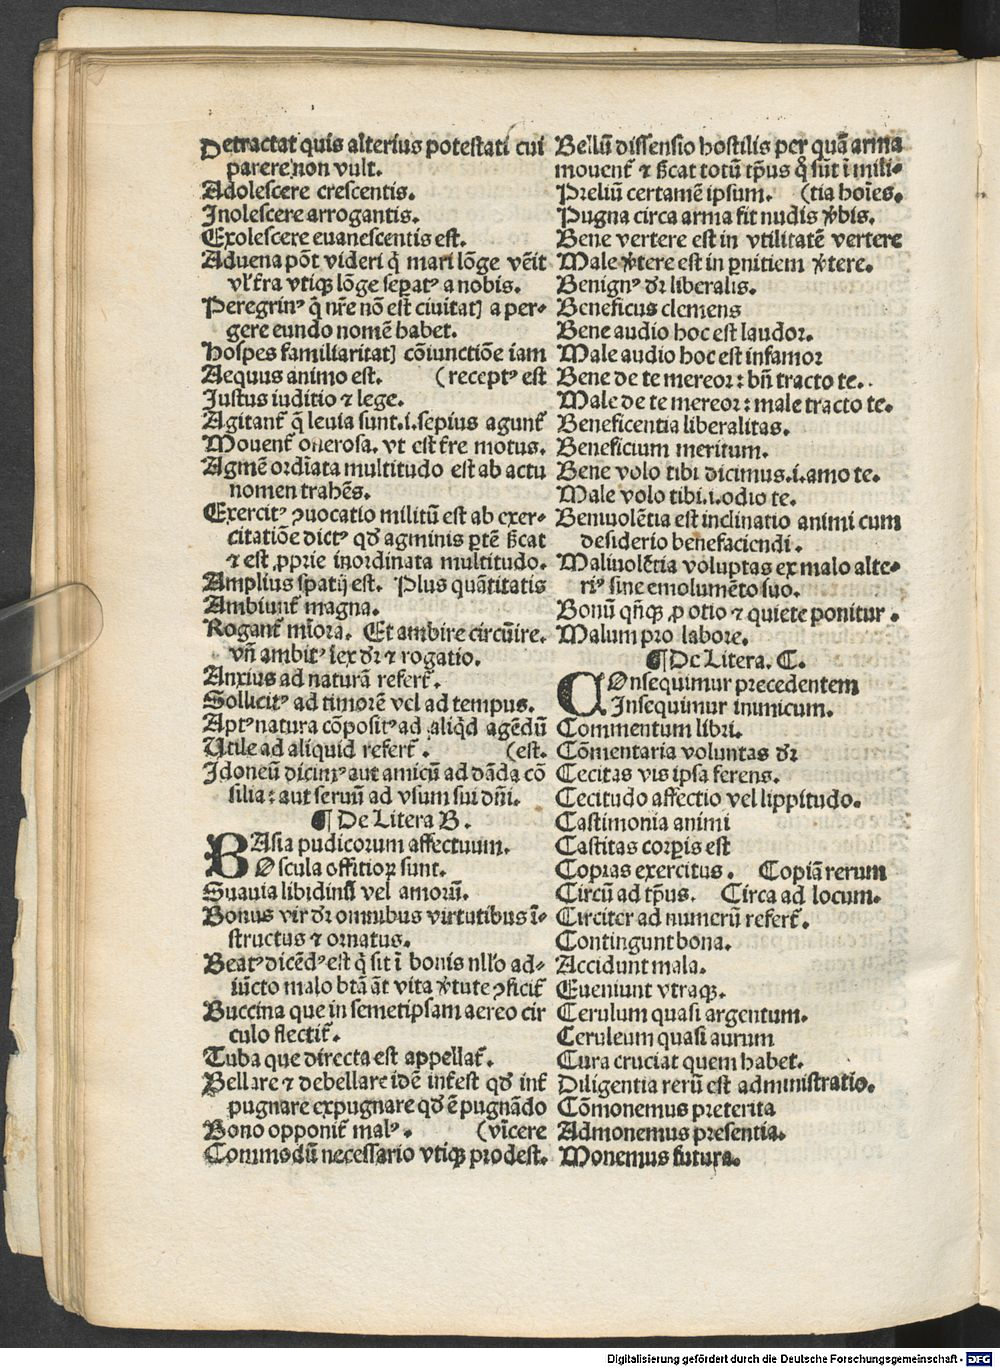 Detractat quis alterius potestati cui
parere non vult.
Adolescere crescentis.
Inolescere arrogantis.
Exolescere euanescentis est.
Aduena põt videri q̃ mari lõge vẽit
vl' t̃ra vtiqꝫ lõge seꝑatꝰ a nobis.
Peregrinꝰ q̃ nr̃e nõ est ciuitatꝭ a per-
gere eundo nomẽ habet.
Hospes familiaritatꝭ cõiunctiõe iam
Aequus animo est. (receptꝰ est
Justus iuditio ⁊ lege.
Agitant᷑ q̃ leuia sunt .i. sepius agunt᷑
Mouent᷑ onerosa. vt est t̃re motus.
Agmẽ ordĩata multitudo est ab actu
nomen trahẽs.
Exercitꝰ ꝯuocatio militũ est ab exer-
citatiõe dictꝰ qd̕ agminis ꝑtẽ ß̃cat
⁊ est ꝓprie inordinata multitudo.
Amplius spatij est. Plus quãtitatis
Ambiunt᷑ magna.
Rogant᷑ mĩora. Et ambire circũire.
vñ ambitꝰ lex dr̃ ⁊ rogatio.
Anxius ad naturã refert᷑.
Sollicitꝰ ad timorẽ vel ad tempus.
Aptꝰ natura cõpositꝰ ad aliqd̕ agẽdũ
Utile ad aliquid refert᷑. (est.
Idoneũ dicimꝰ aut amicũ ad dãda cõ
silia: aut seruũ ad vsum sui dñi.
¶ De Litera B.
BAsia pudicorum affectuum.
Oscula offitioꝝ sunt.
Suauia libidinũ vel amorũ.
Bonus vir dr̃ omnibus virtutibus ĩ-
structus ⁊ ornatus.
Beatꝰ dicẽdꝰ est q̃ sit ĩ bonis nllo ad-
iũcto malo btã ãt vita v̕tute ꝯficit᷑
Buccina que in semetipsam aereo cir
culo flectit᷑.
Tuba que directa est appellat᷑.
Bellare ⁊ debellare idẽ int᷑est qd̕ int᷑
pugnare expugnare qd̕ ẽ pugnãdo
Bono opponit᷑ malꝰ. (vĩcere
Commodũ necessario vtiqꝫ prodest.
Bellũ dissensio hostilis per quã arma
mouent᷑ ⁊ ß̃cat totũ tp̃us q̊ sũt ĩ mili-
Preliũ certamẽ ipsum. (tia hoĩes.
Pugna circa arma fit nudis v̕bis.
Bene vertere est in vtilitatẽ vertere
Male v̕tere est in ꝑnitiem v̕tere.
Benignꝰ dr̃ liberalis.
Beneficus clemens
Bene audio hoc est laudor.
Male audio hoc est infamor
Bene de te mereor: bñ tracto te.
Male de te mereor: male tracto te.
Beneficentia liberalitas.
Beneficium meritum.
Bene volo tibi dicimus .i. amo te.
Male volo tibi .i. odio te.
Beniuolẽtia est inclinatio animi cum
desiderio benefaciendi.
Maliuolẽtia voluptas ex malo alte-
riꝰ sine emolumẽto suo.
Bonũ qñqꝫ ꝓ otio ⁊ quiete ponitur.
Malum pro labore.
¶ De Litera. C.
COnsequimur precedentem
Insequimur inimicum.
Commentum libri.
Cõmentaria voluntas dr̃
Cecitas vis ipsa ferens.
Cecitudo affectio vel lippitudo.
Castimonia animi
Castitas corꝑis est
Copias exercitus. Copiã rerum
Circũ ad tp̃us. Circa ad locum.
Circiter ad numerũ refert᷑.
Contingunt bona.
Accidunt mala.
Eueniunt vtraqꝫ.
Cerulum quasi argentum.
Ceruleum quasi aurum
Cura cruciat quem habet.
Diligentia rerũ est administratio.
Cõmonemus preterita
Admonemus presentia.
Monemus futura.
Digitalisierung gefördert durch die Deutsche Forschungsgemeinschaft - DFG